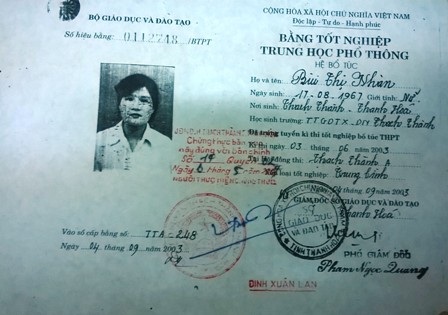 BỘ GIÁO DỤC VÀ ĐÀO TẠO
Số hiệu bằng: 0112748 /BTPT
CỘNG HÒA XÃ HỘI CHỦ NGHĨA VIỆT NAM
Độc lập - Tự do - Hạnh phúc
BẰNG TỐT NGHIỆP
TRUNG HỌC PHỔ THÔNG
HỆ BỔ TÚC
Họ và tên: Bùi Thị Nhàn
Ngày sinh: 17-08-1967 Giới tính: Nữ
Nơi sinh: Thạch Thành - Thanh Hóa
Học sinh trường: TTGDTX-DN Thạch Thành
Đã trúng tuyển kì thi tốt nghiệp bổ túc THPT
Khóa ngày 03 06 2003 Thạch Thành
Xếp loại tốt nghiệp: Trung bình
04 09 2003
GIÁM ĐỐC SỞ GIÁO DỤC VÀ ĐÀO TẠO
Thanh Hoá
PHÓ GIÁM ĐỐC
Phạm Ngọc Quang
SỞ GIÁO DỤC VÀ ĐÀO TẠO
TỈNH THANH HÓA
Chứng thực bản sao
này đúng với bản chính
Số 19
Ngày 6 tháng 5
Vào sổ cấp bằng số: TTA-248
Ngày 04 tháng 09 năm 2003
ĐINH XUÂN LAN